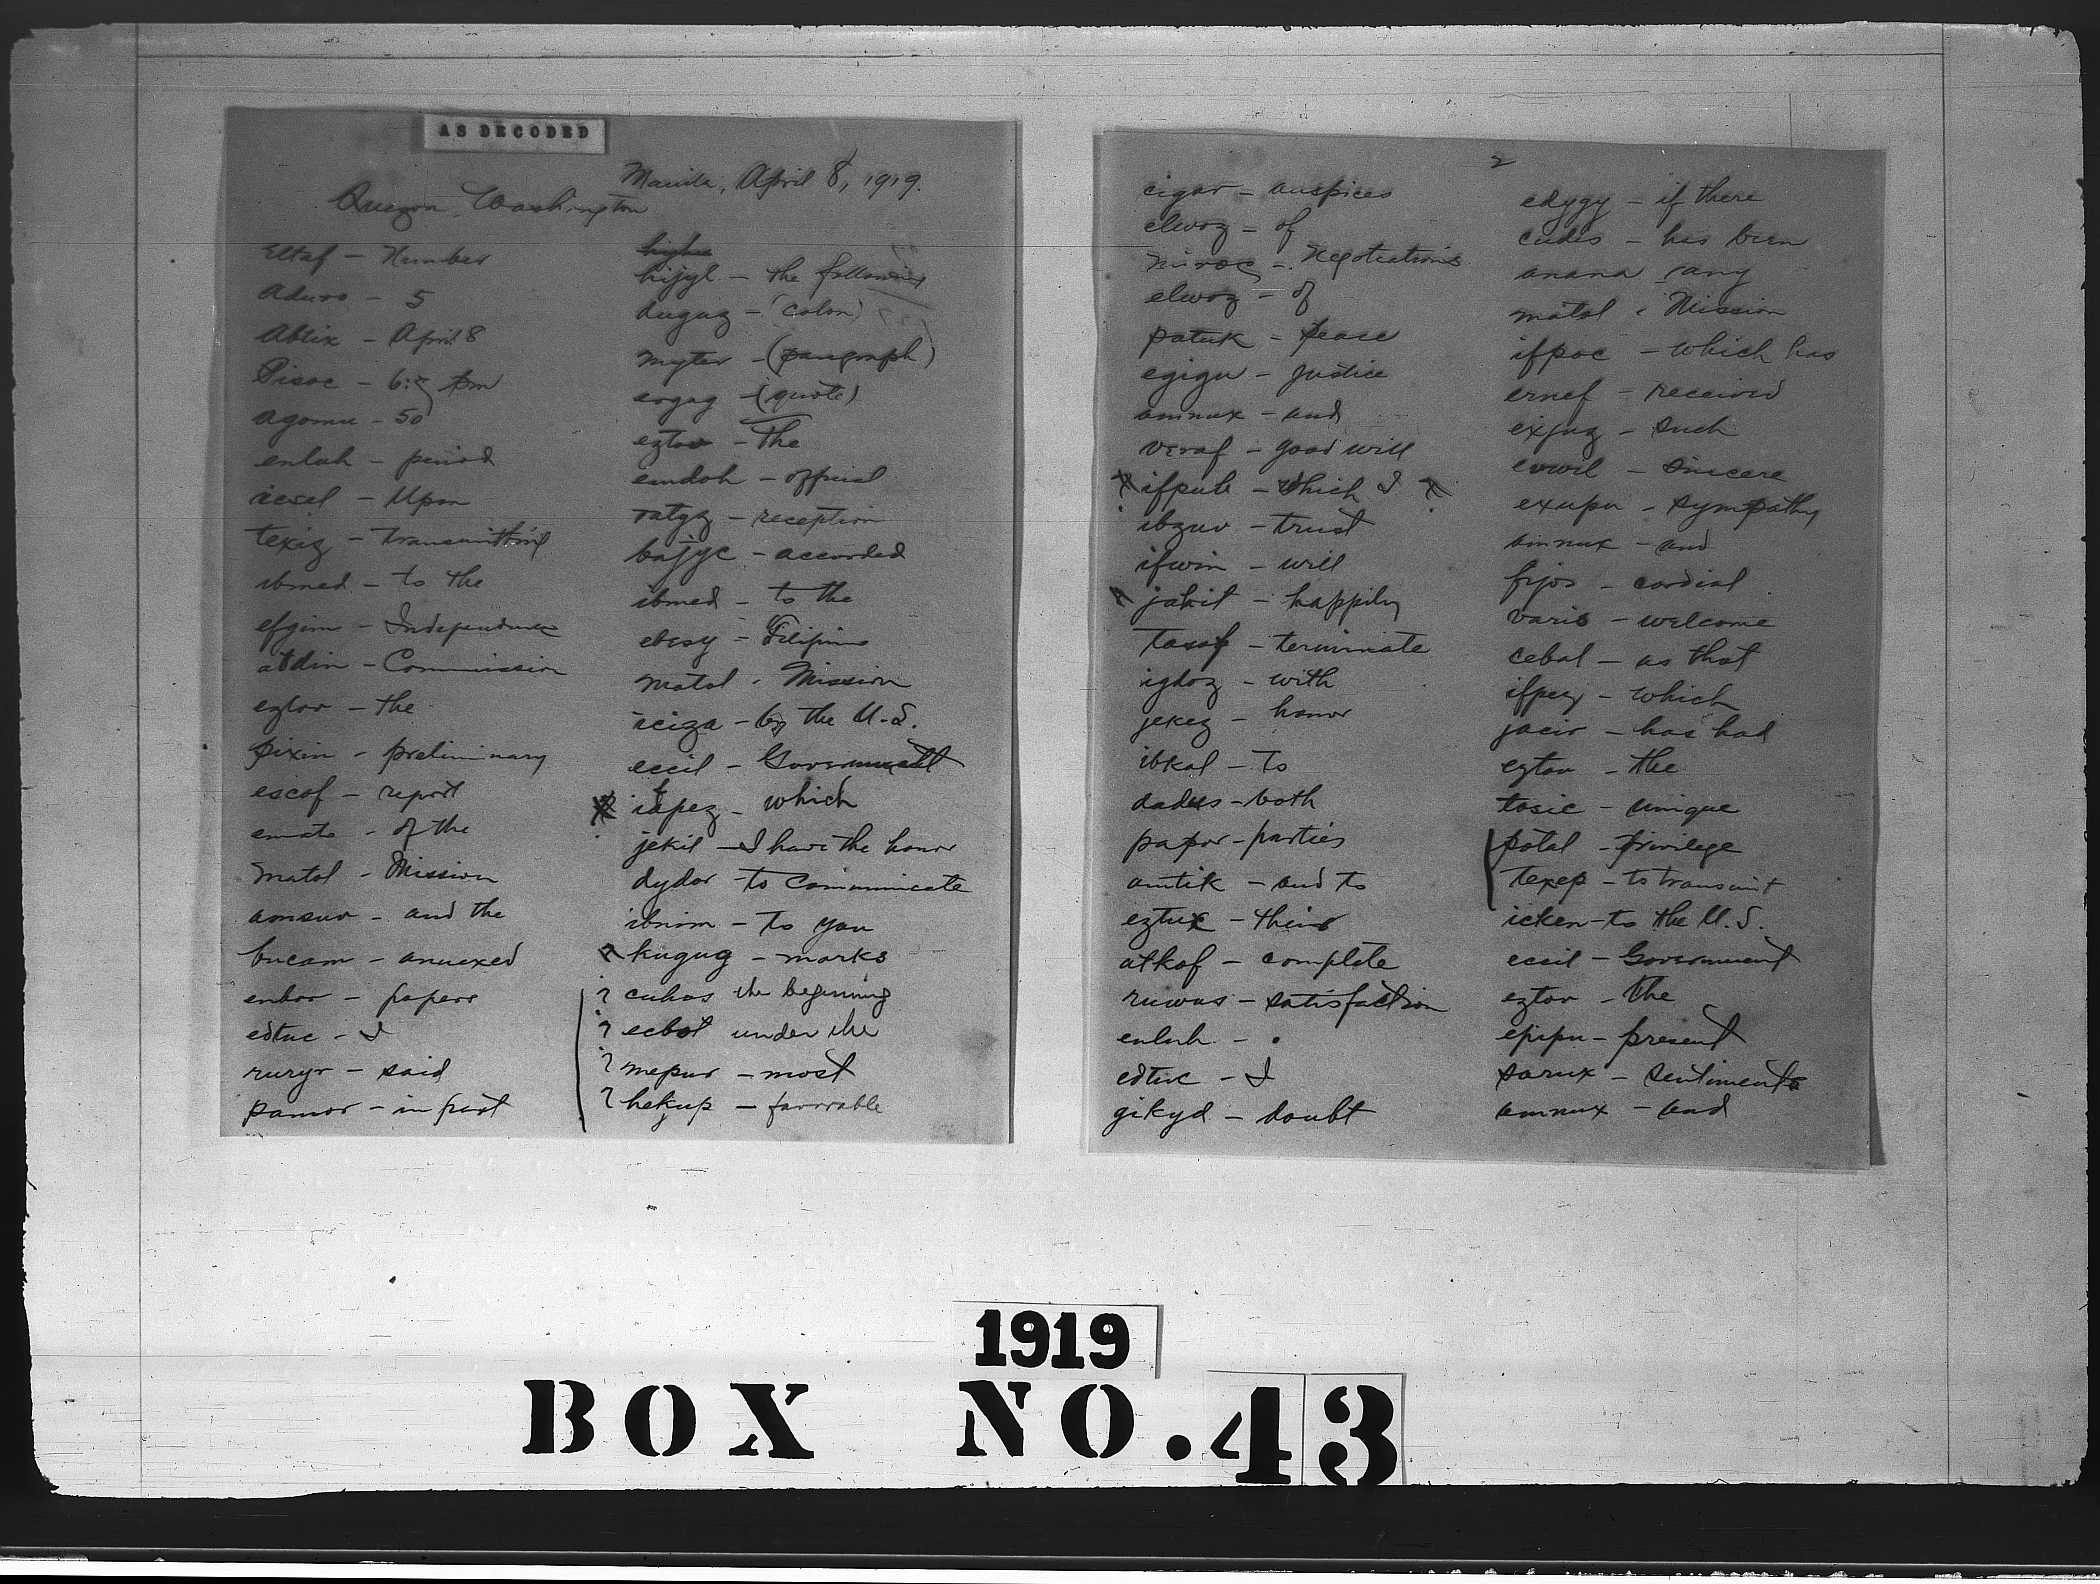 AS DECODED
Manila, April 8, 1919.
Quezon, Washington
Eltaf - Number
Aduro - 5
Abtix - April 8
Pisoc - 6:5 pm
agomu - 50
enluh - period
icsel - Upon
texiz - transmitting
ibmed - to the
efgim - Independence
atdin - Commission
eztor - the
pixin - preliminary
escof - report
emato - of the
matol - Mission
amsuv - and the
bucam - annexed
enbor - papers
edtuc - I
ruryr - said
pamor - in part
higher
hijyl - the following
dugug - (colon)
myter - (paragraph)
sogag - (quote)
eztor - The
emdoh - official
ratgz - reception
bajyc - accorded
ibmed - to the
ebsy - Filipino
matol - Mission
iciza - by the U.S.
eccil - Government
ifpez - which
jekil - I have the honor
dydor - to communicate
ibnim - to you
? kugug - marks
? cuhas the beginning
? ecbot under the
? mepur - most
? hekup - favorable
2
cigar - auspices
elwoz - of
niroc - Negotiations
elwoz - of
patuk - peace
egigu - justice
amnux - and
veraf - good will
x ifpub - which I x
ibzuv - trust
ifwin - will
jahit - happily
tasaf - terminate
igdoz - with
jekez - honor
ibkal - to
dadus - both
papor - parties
amtik - and to
eztux - their
atkof - complete
ruwus - satisfaction
enluh - .
edtuc - I
gikyd - doubt
edygy - if there
cudis - has been
anana - any
matol - Mission
ifpoc - which has
ernef - received
exjuz - such
evwil - sincere
exupu - sympathy
amnux - and
fijos - cordial
varis - welcome
cebal - as that
ifpez - which
jacir - has had
eztor - the
tosic - unique
potal - privilege
texep - to transmit
icken - to the U.S.
eccil - Government
eztor - the
epipu - present
sarux - sentiments
amnux - and
1919
BOX NO. 43